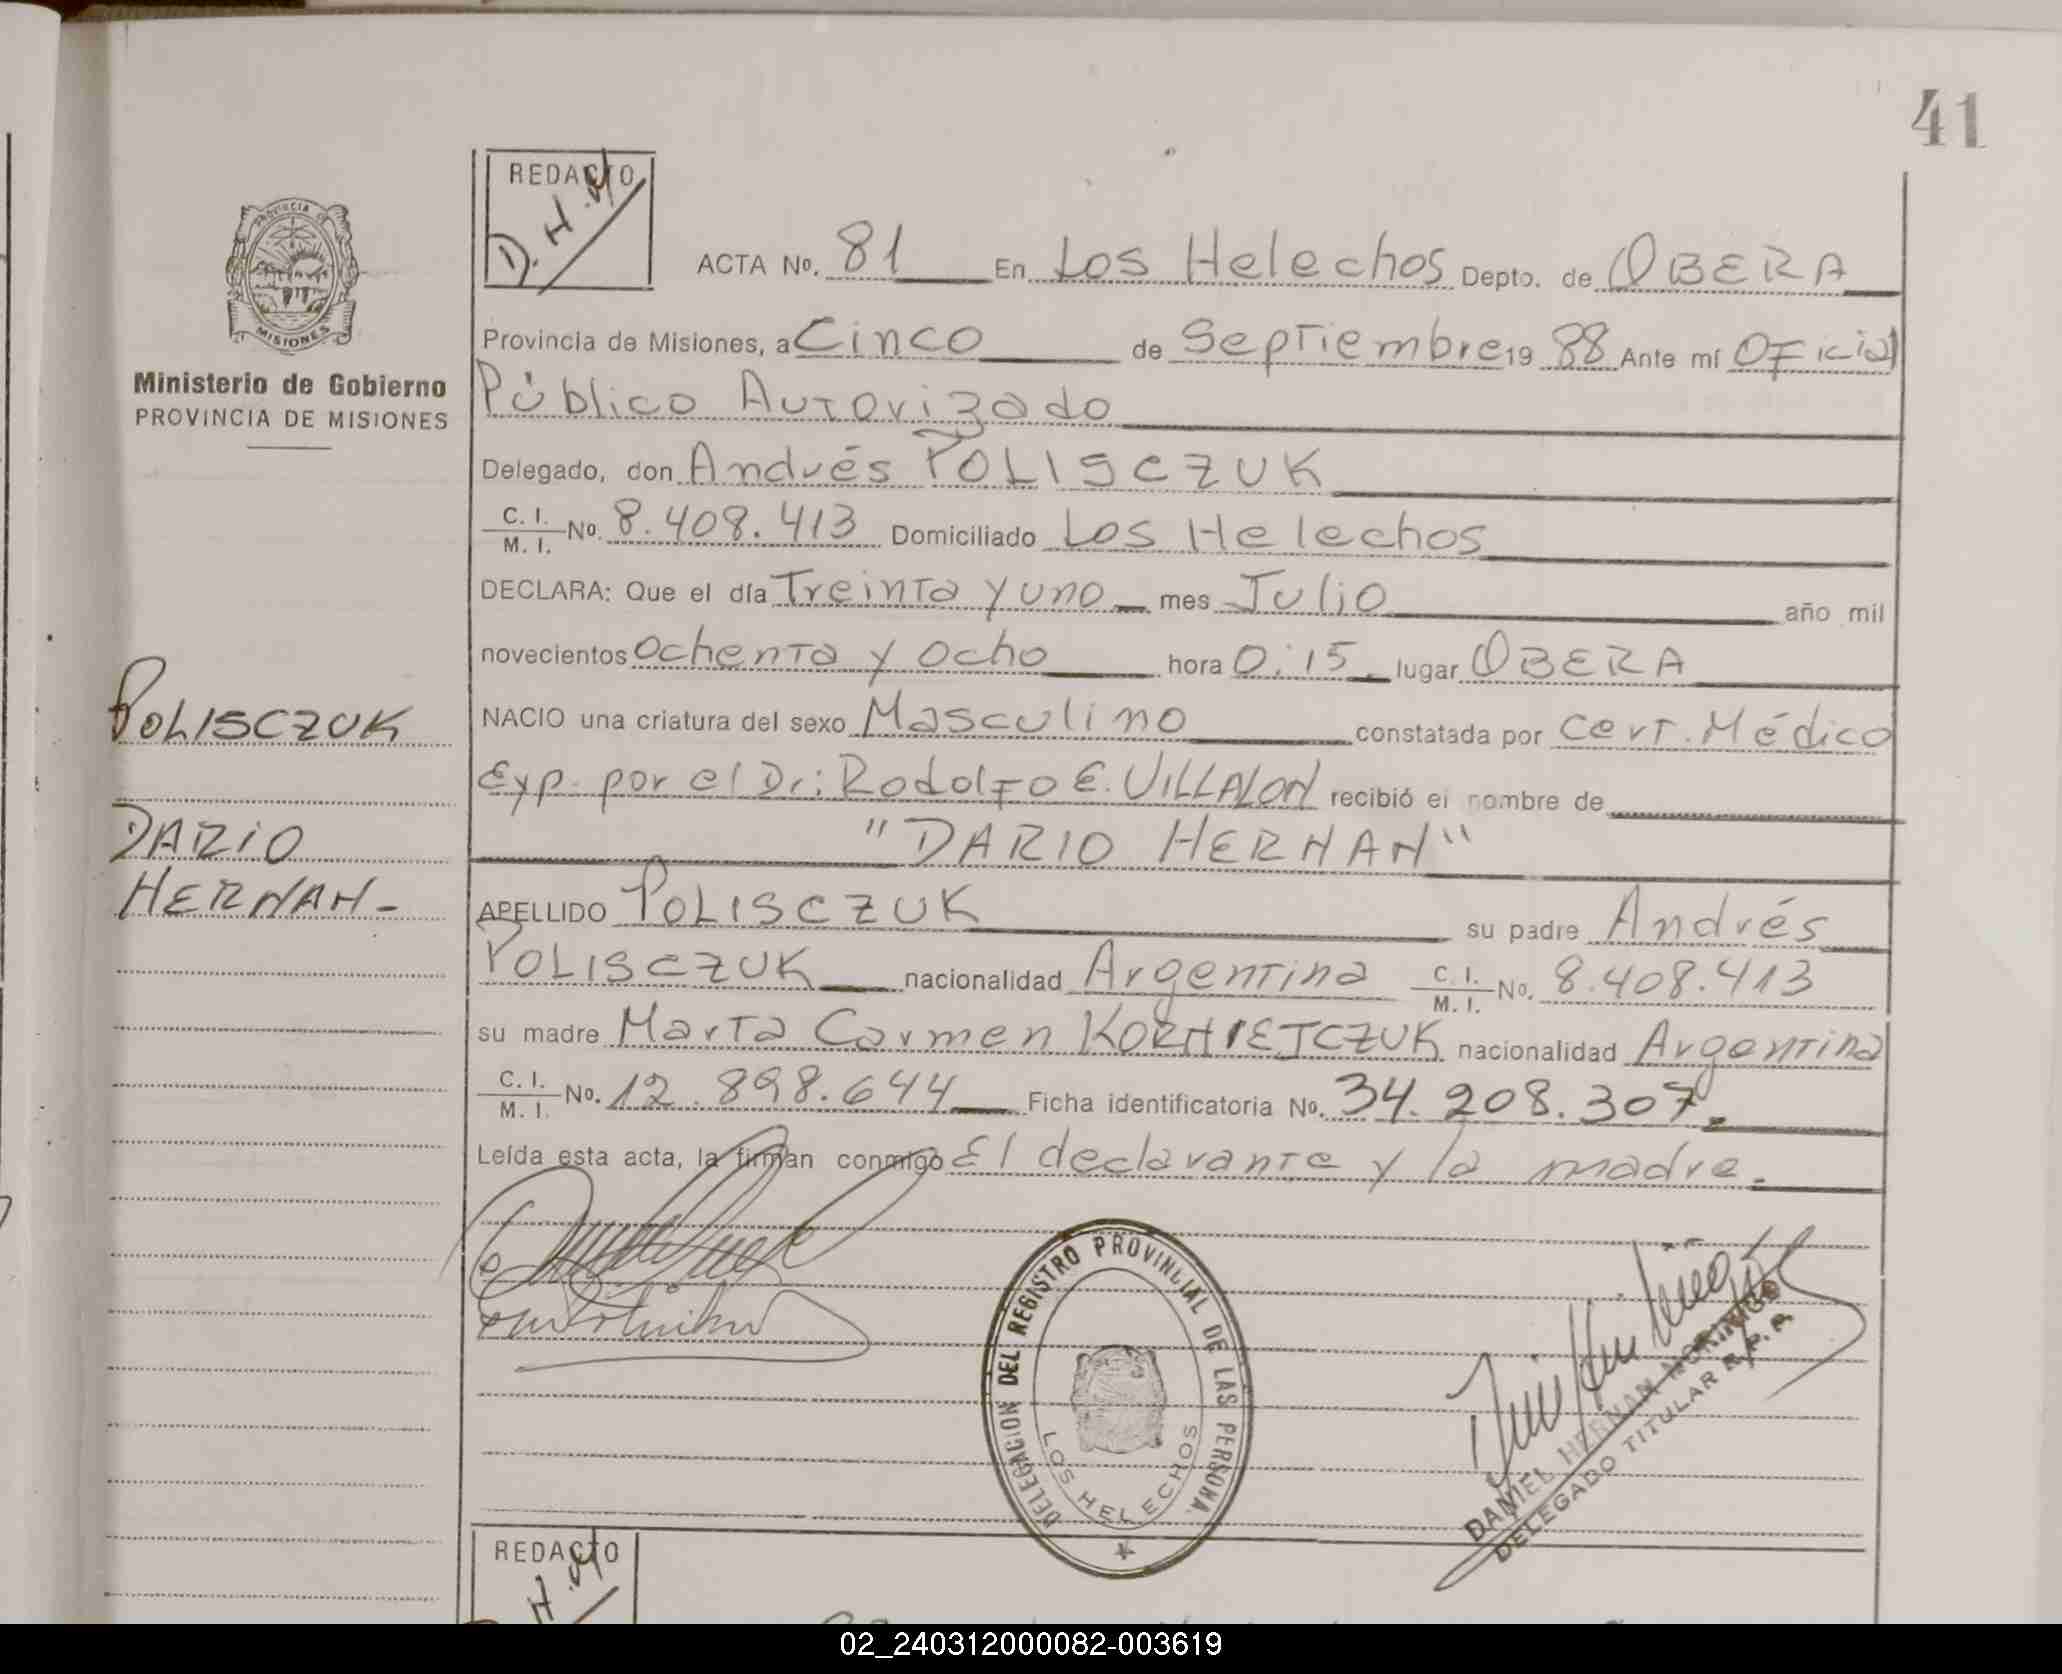 41
REDACTO
D. H. M
PROVINCIA DE
MISIONES
Ministerio de Gobierno
PROVINCIA DE MISIONES
ACTA No. 81 En Los Helechos Depto. de OBERA
Provincia de Misiones, a Cinco de Septiembre 19 88 Ante mí Oficial
Público Autorizado
Delegado, don Andrés POLISCZUK
C. I. / M. I. No. 8.408.413 Domiciliado Los Helechos
DECLARA: Que el día Treinta y uno mes Julio año mil
novecientos ochenta y ocho hora 0:15 lugar OBERA
NACIO una criatura del sexo Masculino constatada por Cert. Médico
Exp. por el Dr: Rodolfo E. VILLALON recibió el nombre de
"DARIO HERNAN"
POLISCZUK
DARIO
HERNAN-
APELLIDO POLISCZUK su padre Andrés
POLISCZUK nacionalidad Argentina C. I. / M. I. No. 8.408.413
su madre Marta Carmen KORNIEJCZUK nacionalidad Argentina
C. I. / M. I. No. 12.898.644 Ficha identificatoria No. 34.208.307.
Leída esta acta, la firman conmigo El declarante y la madre.
DELEGACION DEL REGISTRO PROVINCIAL DE LAS PERSONA.
LOS HELECHOS
DANIEL HERNAN
DELEGADO TITULAR R.P.P.
REDACTO
H. M
02_240312000082-003619